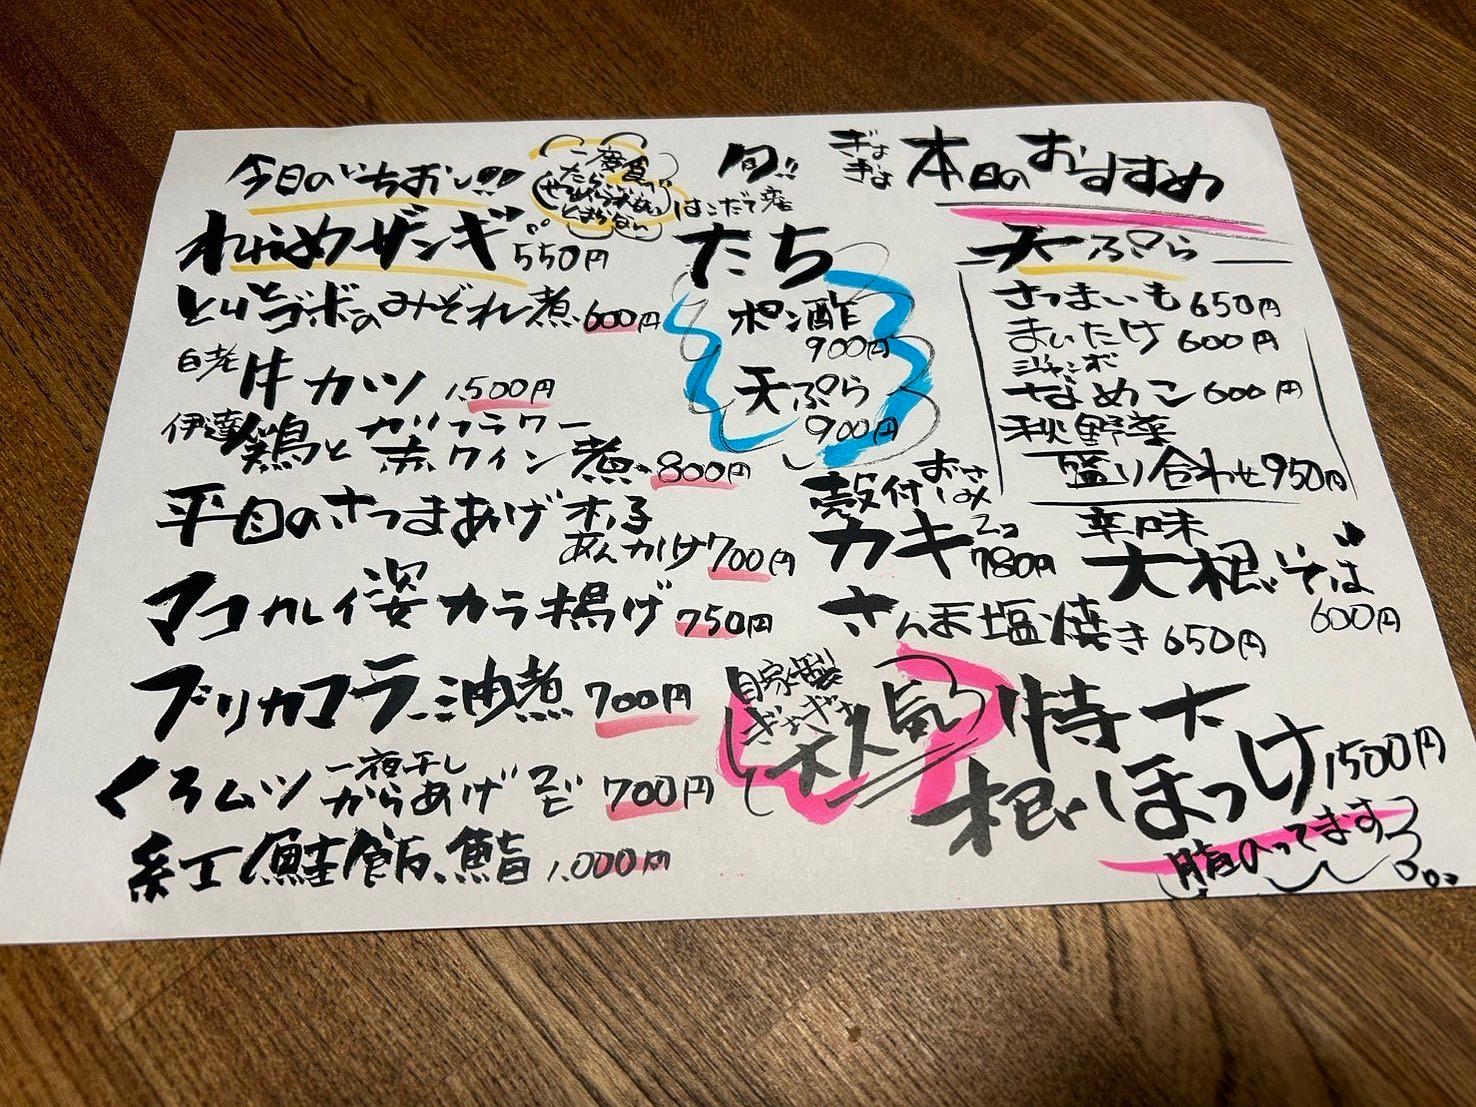 ぎょぎょ 本日のおすすめ
今日のいちおし!!
一度食べ
たら
とまらない
わらじめザンギ 550円
とりとゴボウのみぞれ煮 600円
白老牛カツ 1,500円
伊達鶏とカリフラワー
赤ワイン煮 800円
平目のさつまあげ
あんかけ 700円
マコカレイ姿カラ揚げ 750円
ブリカマコラー油煮 700円
くろムツ一夜干し
からあげ 2ピ 700円
紅鮭飯鮨 1,000円
旬!!
はこだて産
たち
ポン酢
900円
天ぷら
900円
殻付おさしみ
カキ 2コ 780円
さんま塩焼き 650円
自家製
ぎょぎょ
大人気
特大
根ぼっけ 1500円
脂のってます
天ぷら
さつまいも 650円
まいたけ 600円
ジャンボ
なめこ 600円
秋野菜
盛り合わせ 950円
辛味
大根そば
600円